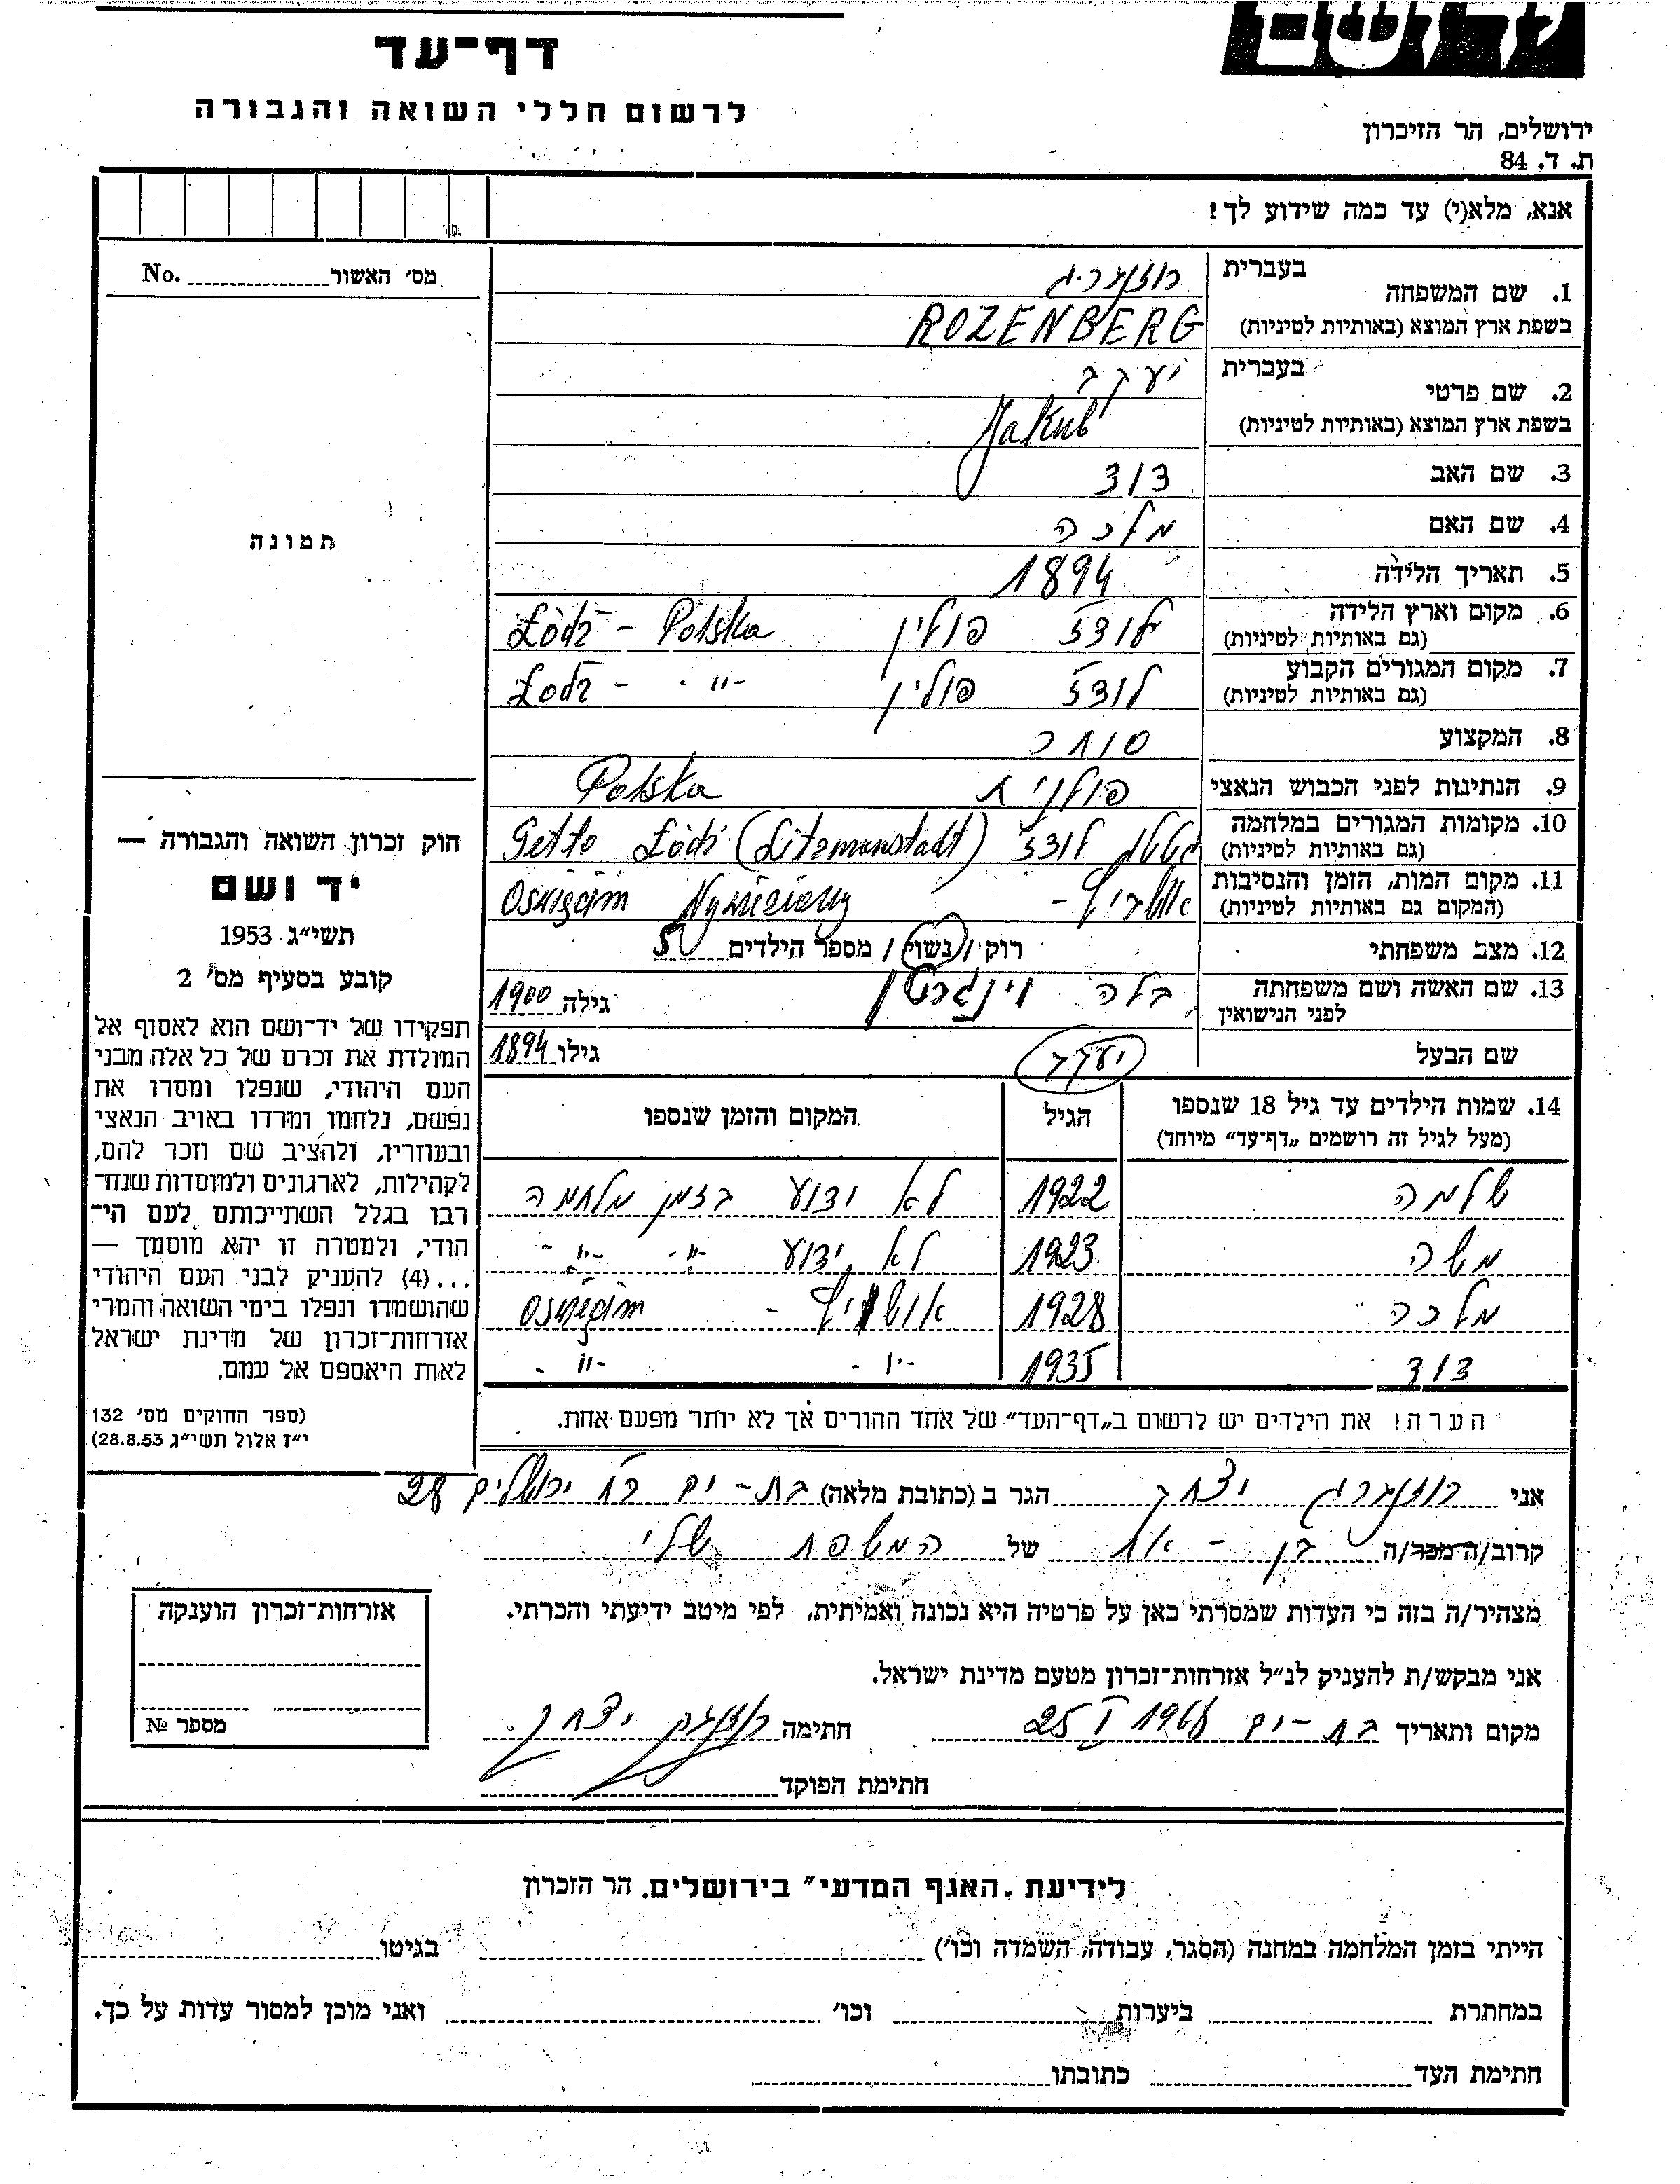 ושם
דף־עד
לרשום חללי השואה והגבורה
ירושלים, הר הזיכרון
ת. ד. 84
אנא, מלא(י) עד כמה שידוע לך!
מס׳ האשור No.
תמונה
1. שם המשפחה בעברית רוזנברג
בשפת ארץ המוצא (באותיות לטיניות) ROZENBERG
2. שם פרטי בעברית יעקב
בשפת ארץ המוצא (באותיות לטיניות) Jakub
3. שם האב דוד
4. שם האם מלכה
5. תאריך הלידה 1894
6. מקום וארץ הלידה (גם באותיות לטיניות) לודז פולין Łódź - Polska
7. מקום המגורים הקבוע (גם באותיות לטיניות) לודז פולין Łodź - -״-
8. המקצוע סוחר
9. הנתינות לפני הכבוש הנאצי פולנית Polska
10. מקומות המגורים במלחמה (גם באותיות לטיניות) גטטו לודז Getto Łódź (Litzmanstadt)
11. מקום המות, הזמן והנסיבות (המקום גם באותיות לטיניות) אושויץ - Oswięcim
12. מצב משפחתי רוק / נשוי / מספר הילדים 5
13. שם האשה ושם משפחתה לפני הנישואין בלה וינגרטן גילה 1900
שם הבעל יעקב גילו 1894
14. שמות הילדים עד גיל 18 שנספו (מעל לגיל זה רושמים „דף־עד״ מיוחד) הגיל המקום והזמן שנספו
שלמה 1922 לא ידוע בזמן מלחמה
משה 1923 לא ידוע -״- -״-
מלכה 1928 אושויץ - Oswięcim
דוד 1935 -״- -״-
הערה! את הילדים יש לרשום ב„דף־העד״ של אחד ההורים אך לא יותר מפעם אחת.
חוק זכרון השואה והגבורה —
יד ושם
תשי״ג 1953
קובע בסעיף מס׳ 2
תפקידו של יד־ושם הוא לאסוף אל
המולדת את זכרם של כל אלה מבני
העם היהודי, שנפלו ומסרו את
נפשם, נלחמו ומרדו באויב הנאצי
ובעוזריו, ולהציב שם וזכר להם,
לקהילות, לארגונים ולמוסדות שנח־
רבו בגלל השתייכותם לעם הי־
הודי, ולמטרה זו יהא מוסמך —
...(4) להעניק לבני העם היהודי
שהושמדו ונפלו בימי השואה והמרי
אזרחות־זכרון של מדינת ישראל
לאות היאספם אל עמם.
(ספר החוקים מס׳ 132
י״ז אלול תשי״ג 28.8.53)
אני רוזנברג יצחק הגר ב (כתובת מלאה) בת-ים רח ירושלים 28
קרוב/ה מכר/ה בן - אח של המשפחה שלי
מצהיר/ה בזה כי העדות שמסרתי כאן על פרטיה היא נכונה ואמיתית, לפי מיטב ידיעתי והכרתי.
אני מבקש/ת להעניק לנ״ל אזרחות־זכרון מטעם מדינת ישראל.
מקום ותאריך בת-ים 25 I חתימה רוזנברג יצחק
חתימת הפוקד
אזרחות־זכרון הוענקה
מספר №
לידיעת „האגף המדעי״ בירושלים. הר הזכרון
הייתי בזמן המלחמה במחנה (הסגר, עבודה, השמדה וכו׳) בגיטו
במחתרת ביערות וכו׳ ואני מוכן למסור עדות על כך.
חתימת העד כתובתו